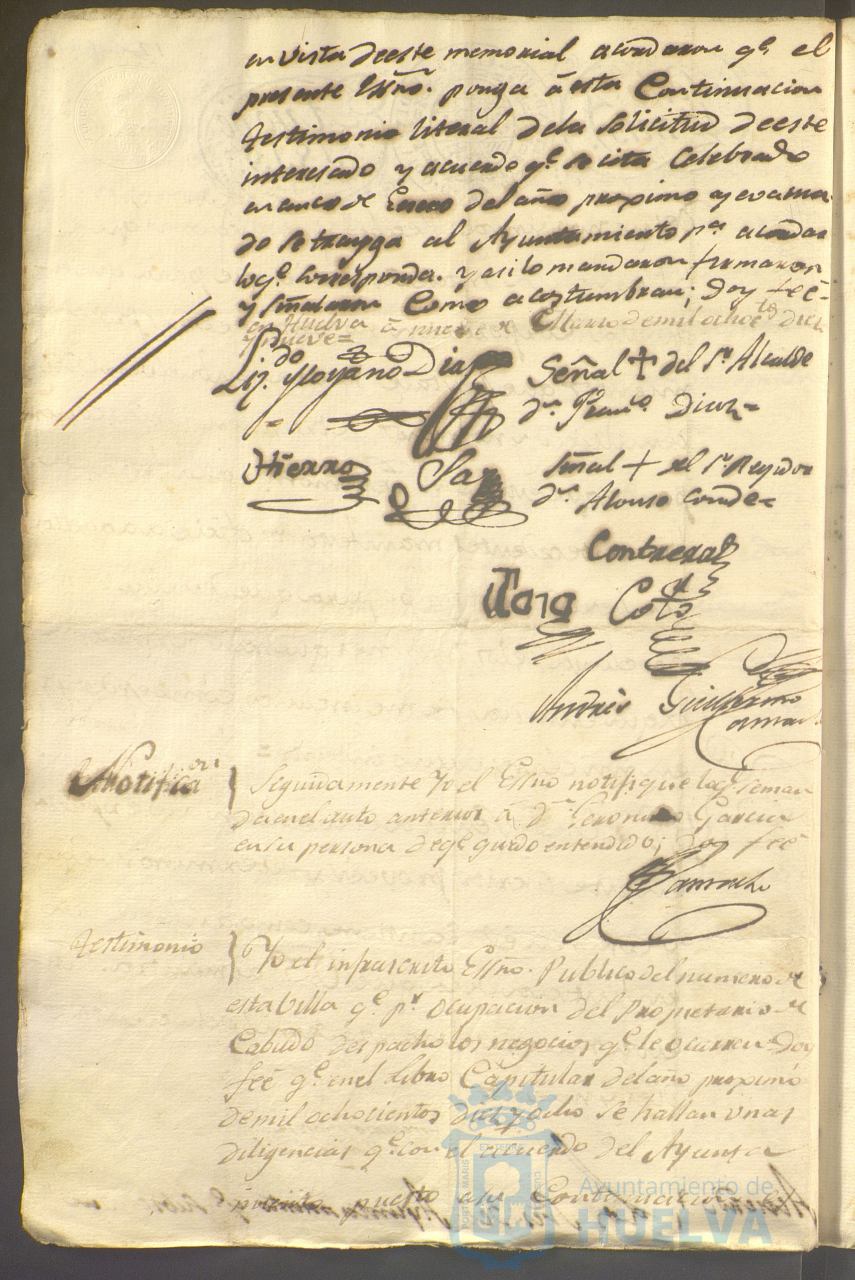 en vista de este memorial acordaron qe. el
presente Essno. ponga á esta Continuacion
testimonio literal dela Solicitud de este
interesado y acuerdo qe. se cita Celebrado
en cinco de Enero del año proximo y evacua-
do se trayga al Ayuntamiento pa. acordar
loqe. corresponda. y asi lo mandaron firmaron
y señalaron Como acostumbran; Doy feé-
en Huelva á nueve de Marzo de mil ochotos. diez
y nueve=
Lizdo. Moyano Diaz
Señal + del Sr. Alcalde
dn. Franco. Diaz=
Hierro
Saz
Señal + del Sr. Regidor
dn. Alonso Conde=
Contreras
Toro
Coto
Andrés Guillermo
Camacho
Notificaon
Seguidamente Yo el Essno notifiqué lo qe. se man
da en el auto anterior á Dn. Geronimo Garcia
en su persona de qe. quedo entendido; doy feé
Camacho
Testimonio
Yo el infrascrito Essno. Publico del numero de
esta Villa qe. pr. ocupacion del Propietario de
Cabildo despacho los negocios qe. le ocurren Doy
feé qe. en el Libro Capitular del año proximo
de mil ochocientos diez y ocho se hallan unas
diligencias qe. con el acuerdo del Ayunta
puesto a su Continuacion
Ayuntamiento de
HUELVA